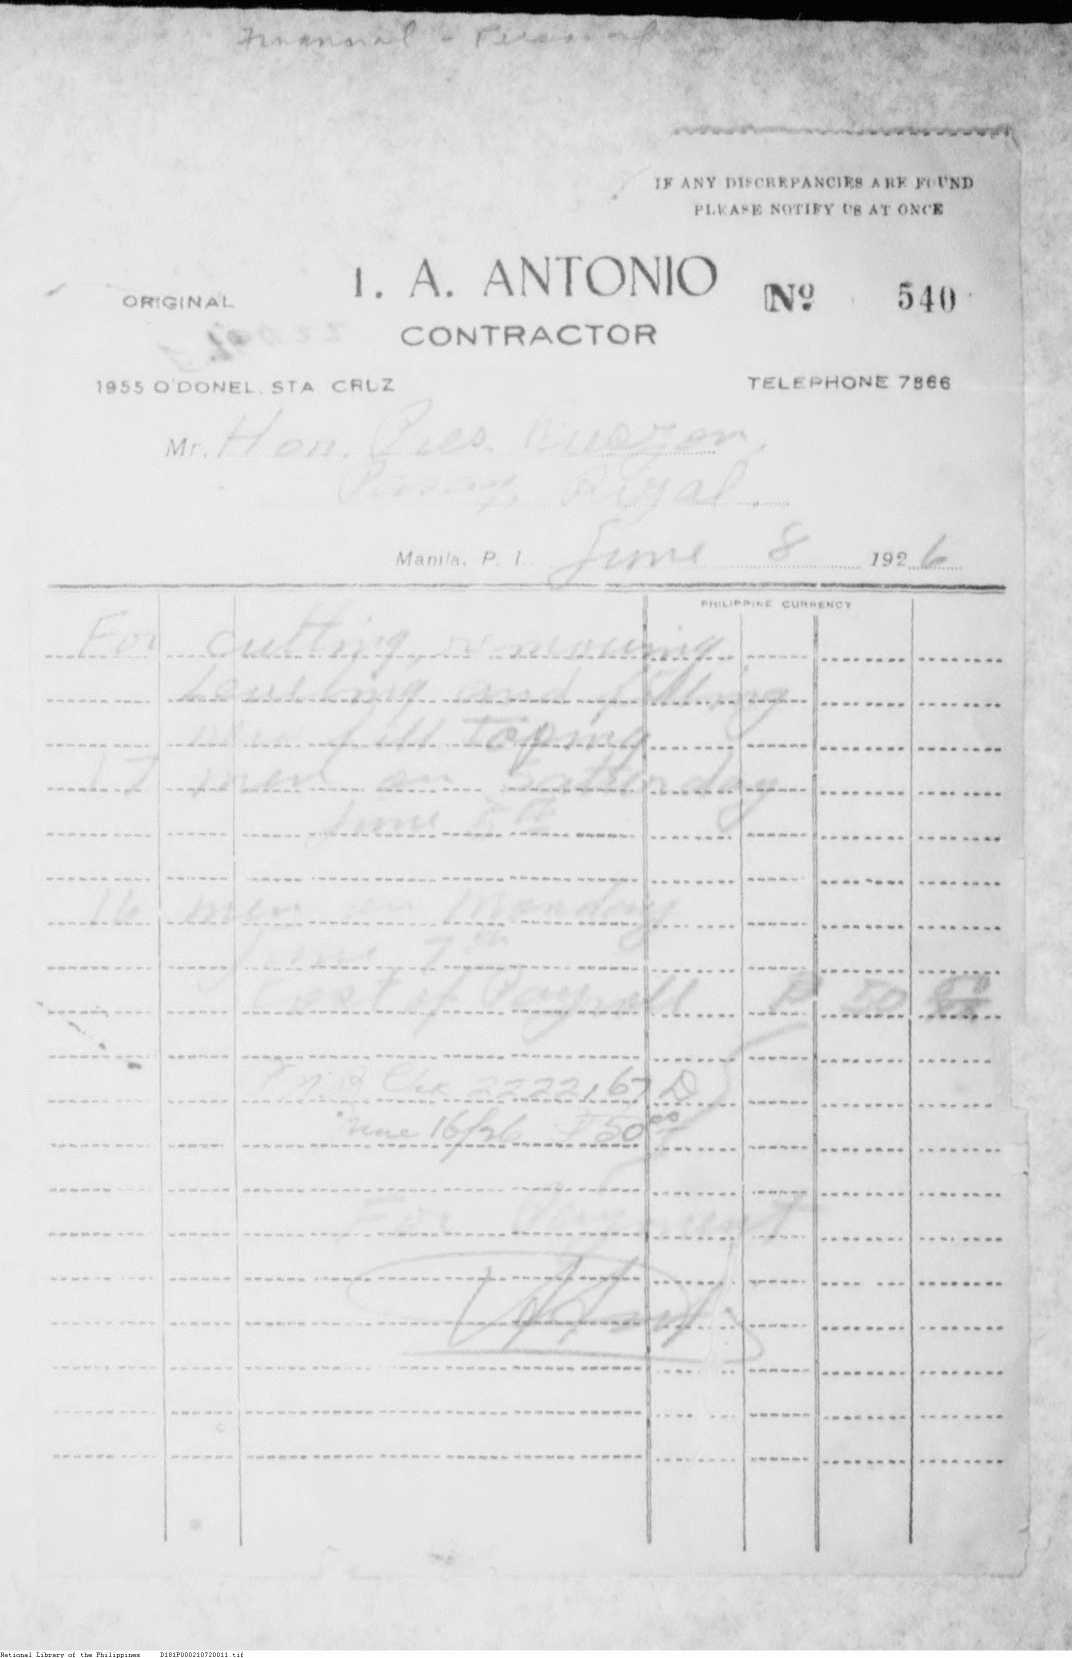 Financial - Personal
IF ANY DISCREPANCIES ARE FOUND
PLEASE NOTIFY US AT ONCE
I. A. ANTONIO
ORIGINAL
Nº 540
CONTRACTOR
1955 O'DONEL, STA CRUZ
TELEPHONE 7866
Mr. Hon. Pres. Quezon,
Pasay, Rizal.
Manila, P. I. June 8 1926
PHILIPPINE CURRENCY
For cutting, removing
Leveling and filling
fill Toping
17 men on Satturday
June 5th
16 men on Monday
June 7th
Cost of Payroll P 50
Chk 2222,67 D
June 16/26 ₱50.00
For Payment
National Library of the Philippines D181P000210720011.tif